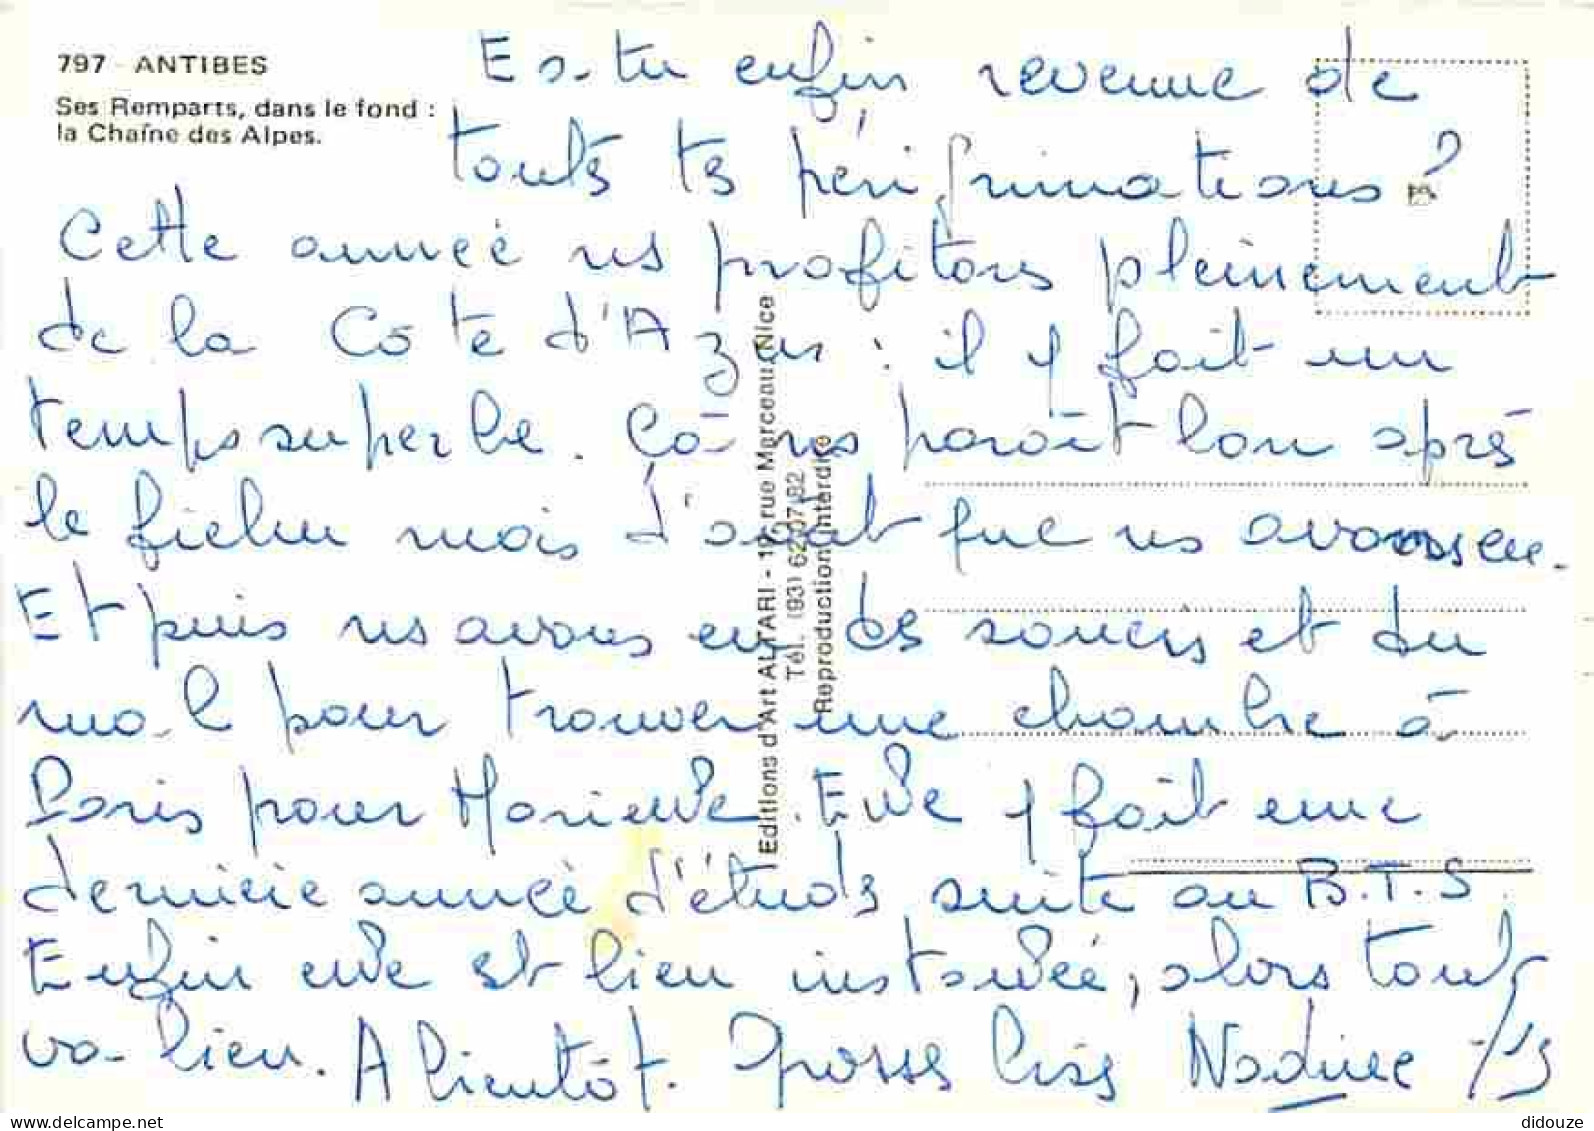 797 - ANTIBES
Ses Remparts, dans le fond :
la Chaîne des Alpes.
Es-tu enfin revenue de
touts tes pérégrinations ?
Cette année ns profitons pleinement
de la Côte d'Azur : il y fait un
temps superbe. Cà ns paroît bon après
le fichu mois d'août que ns avons eu.
Et puis ns avons eu des soucis et du
mal pour trouver une chambre à
Paris pour Marielle. Elle y fait une
dernière année d'études suite au B.T.S.
Enfin elle est bien installée, alors tout
va bien. A bientôt. Grosses bises Nadine
Editions d'Art ALTARI - rue Marceau, Nice
Tél. (93)
Reproduction interdite
didouze